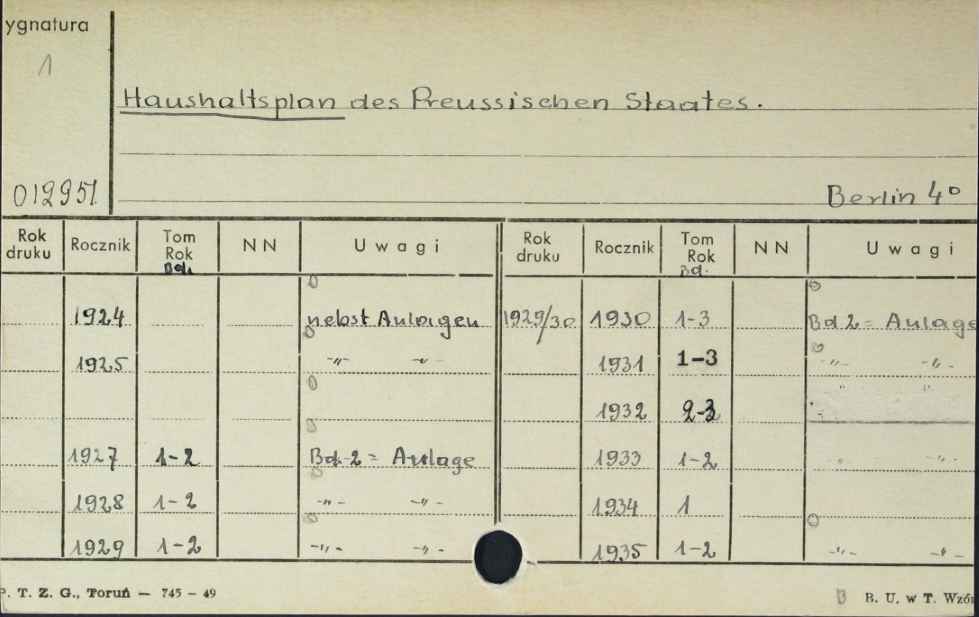 ygnatura
1
Haushaltsplan des Preussischen Staates.
012951
Berlin 4°
Rok druku Rocznik Tom Rok Bd. NN Uwagi Rok druku Rocznik Tom Rok Bd. NN Uwagi
1924 nebst Anlagen 1929/30 1930 1-3 Bd 2 = Anlage
1925 -"- -"- 1931 1-3 -"- -"-
1932 2-3 " "
1927 1-2 Bd. 2 = Anlage 1933 1-2 -"- -"-
1928 1-2 -"- -"- 1934 1
1929 1-2 -"- -"- 1935 1-2 -"- -"-
P. T. Z. G., Toruń — 745 — 49 B. U. w T. Wzór